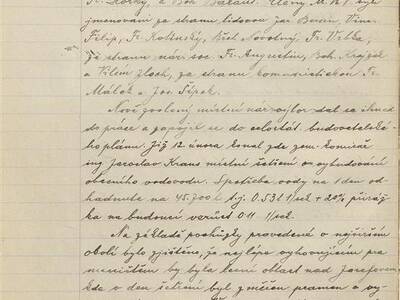 Fr. Horký, a Boh. Balaut. Členy M.N.V. byli
jmenováni za stranu lidovou Jar. Beran, Vinc.
Filip, Fr. Kotenský, Břet. Novotný, Fr. Vrbka,
Za stranu nár. soc. Fr. Augustin, Boh. Krajzek
a Vilém Zloch, za stranu komunistickou Fr.
Málek a Jos. Šípek.
Nově zvolený místní nár. výbor dal se ihned
do práce a zapojil se do celostát. budovatelské-
ho plánu. Již 12. února konal zde zem. komisař
ing. Jaroslav Kraus místní šetření o vybudování
obecního vodovodu. Spotřeba vody na 1 den od-
hadnuta na 45.700 l t.j. 0.53 l 1/sek + 20% přiráž-
ka na budoucí vzrůst 0.11 1/sek.
Na základě pochůzky provedené v nejširším
okolí bylo zjištěno, že nejlépe vyhovujícím pra-
meništěm by byla lesní oblast nad Josefovem
kde v den šetření byl změřen pramen o vy-